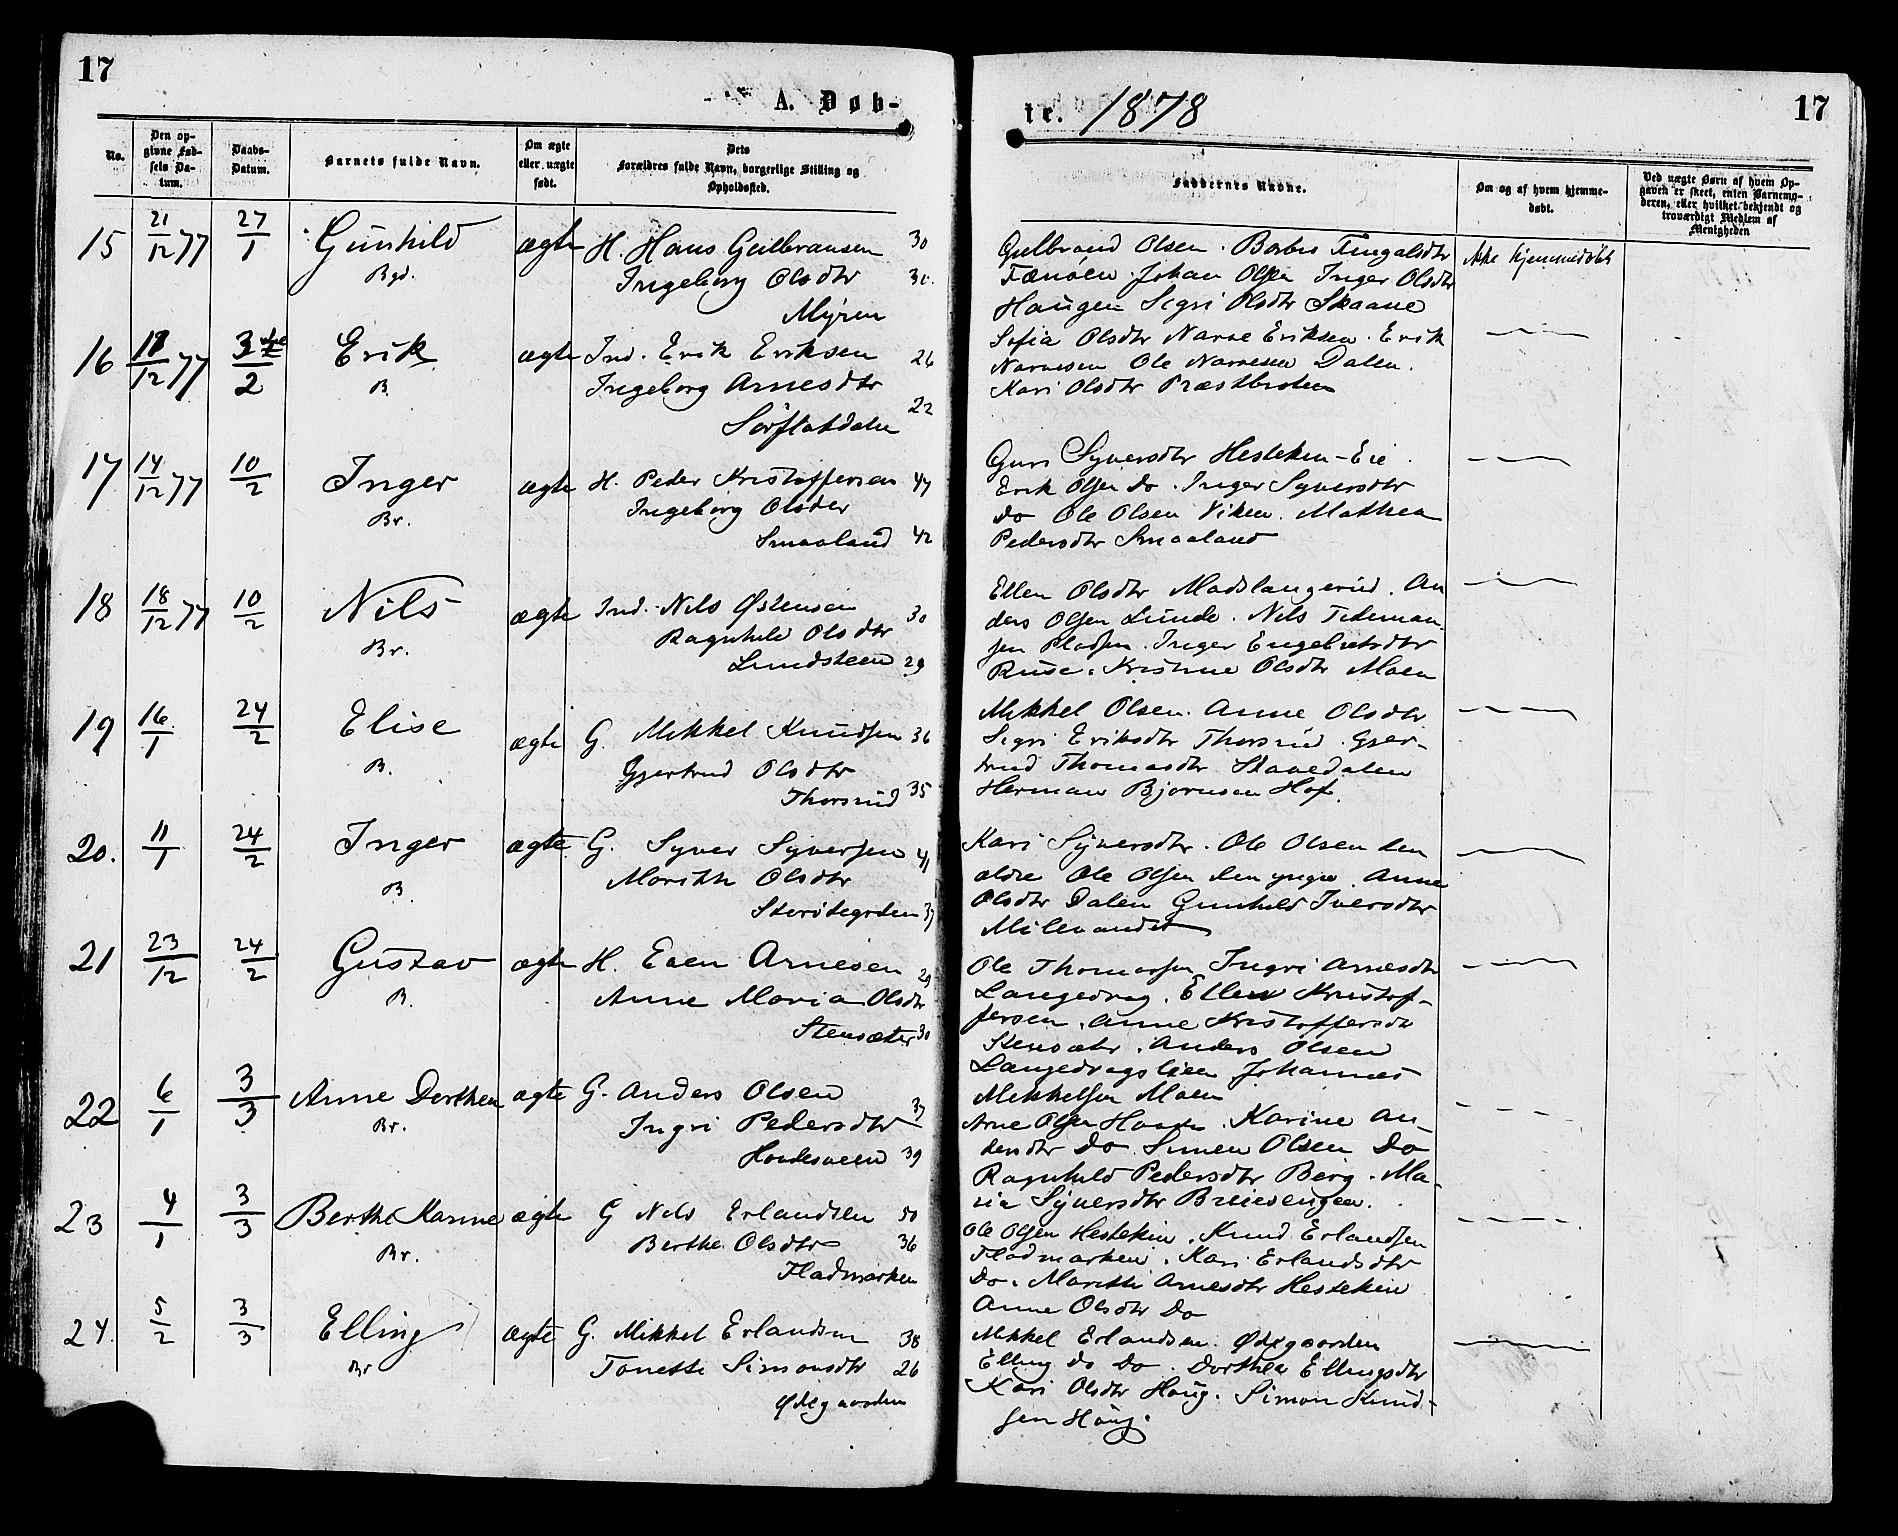 17
A. Døb-
No.
Den op-
givne Fød-
sels Da-
tum.
Daabs-
Datum.
Barnets fulde Navn.
Om ægte
eller uægte
født.
Dets
Forældres fulde Navn, borgerlige Stilling og
Opholdssted.
15 21/12 77 27/1 Gunhild ægte H. Hans Gulbransen 30
Bgd. Ingeborg Olsdtr 30.
Myren
16 18/12 77 3/2 Erik ægte Ind. Erik Eriksen 26
B. Ingeborg Arnesdtr 22
Sørflatdalen
17 14/12 77 10/2 Inger ægte H. Peder Kristoffersen 47
Br. Ingeborg Olsdtr
Smaaland 42
18 18/12 77 10/2 Nils ægte Ind. Nils Østensen 30
Br. Ragnhild Olsdtr
Lundsteen 29
19 16/1 24/2 Elise ægte G. Mikkel Knudsen 36
B. Gjertrud Olsdtr
Thorsrud 35
20. 11/1 24/2 Inger ægte G. Syver Syversen 41
B. Marithe Olsdtr
37
21 23/12 24/2 Gustav ægte H. Even Arnesen 29
B. Anne Maria Olsdtr
Stensæter 30
22 6/1 3/3 Anne Dorthea ægte G. Anders Olsen 37
Br. Ingri Pedersdtr
39
23 4/1 3/3 Berthe Karine ægte G Nils Erlandsen 50
Br. Berthe Olsdtr 36
Fladmarken
24. 5/2 3/3 Elling ægte G. Mikkel Erlandsen 38
Br Tonette Simonsdtr 26
Ødegaarden
te. 1878
17
Faddernes Navne.
Om og af hvem hjemme-
døbt.
Ved uægte Børn af hvem Op-
gaven er skeet, enten Barnemo-
deren, eller hvilket bekjendt og
troværdigt Medlem af
Menigheden
Gulbrand Olsen. Barbro Fingalsdtr Ikke hjemmedøbt
Johan Olsen Inger Olsdtr
Haugen Sigri Olsdtr Skaane
Sofia Olsdtr Narve Eriksen. Erik
Narvesen Ole Narvesen Dalen.
Kari Olsdtr Præstbroten
Guri Syversdtr Hesteken-Eie
Erik Olsen Do. Inger Syversdtr
Do Ole Olsen Viken. Mathea
Pedersdtr Smaaland
Ellen Olsdtr Madslangerud. An
ders Olsen Lunde. Nils Tideman-
sen Pladsen. Inger Engebretsdtr
Ruse. Kristine Olsdtr Moen
Mikkel Olsen. Anne Olsdtr
Sigri Eriksdtr Thorsrud. Gjer-
trud Thomasdtr Stavedalen
Herman Bjørnsen Hof.
Kari Syversdtr. Ole Olsen den
ældre Ole Olsen den yngre. Anne
Olsdtr Dalen Gunhild Iversdtr
Milevandet
Ole Thomassen Ingri Arnesdtr
Langedrag. Ellen Kristof-
fersen. Anne Kristoffersdtr
Stensæter. Anders Olsen
Langedragslien Johannes
Mikkelsen Moen
Arne Olsen. Karine An-
dersdtr Do Simen Olsen Do
Ragnhild Pedersdtr Berg. Ma-
ria Syversdtr Breiesengen.
Ole Olsen Hesteken. Knud Erlandsen
Fladmarken. Kari Erlandsdtr
Do. Marithe Arnesdtr Hesteken
Anne Olsdtr Do
Mikkel Erlandsen. Ødegaarden
Elling Do Do. Dorthea Ellingsdtr
Kari Olsdtr Haug. Simon Knud-
sen Haug.